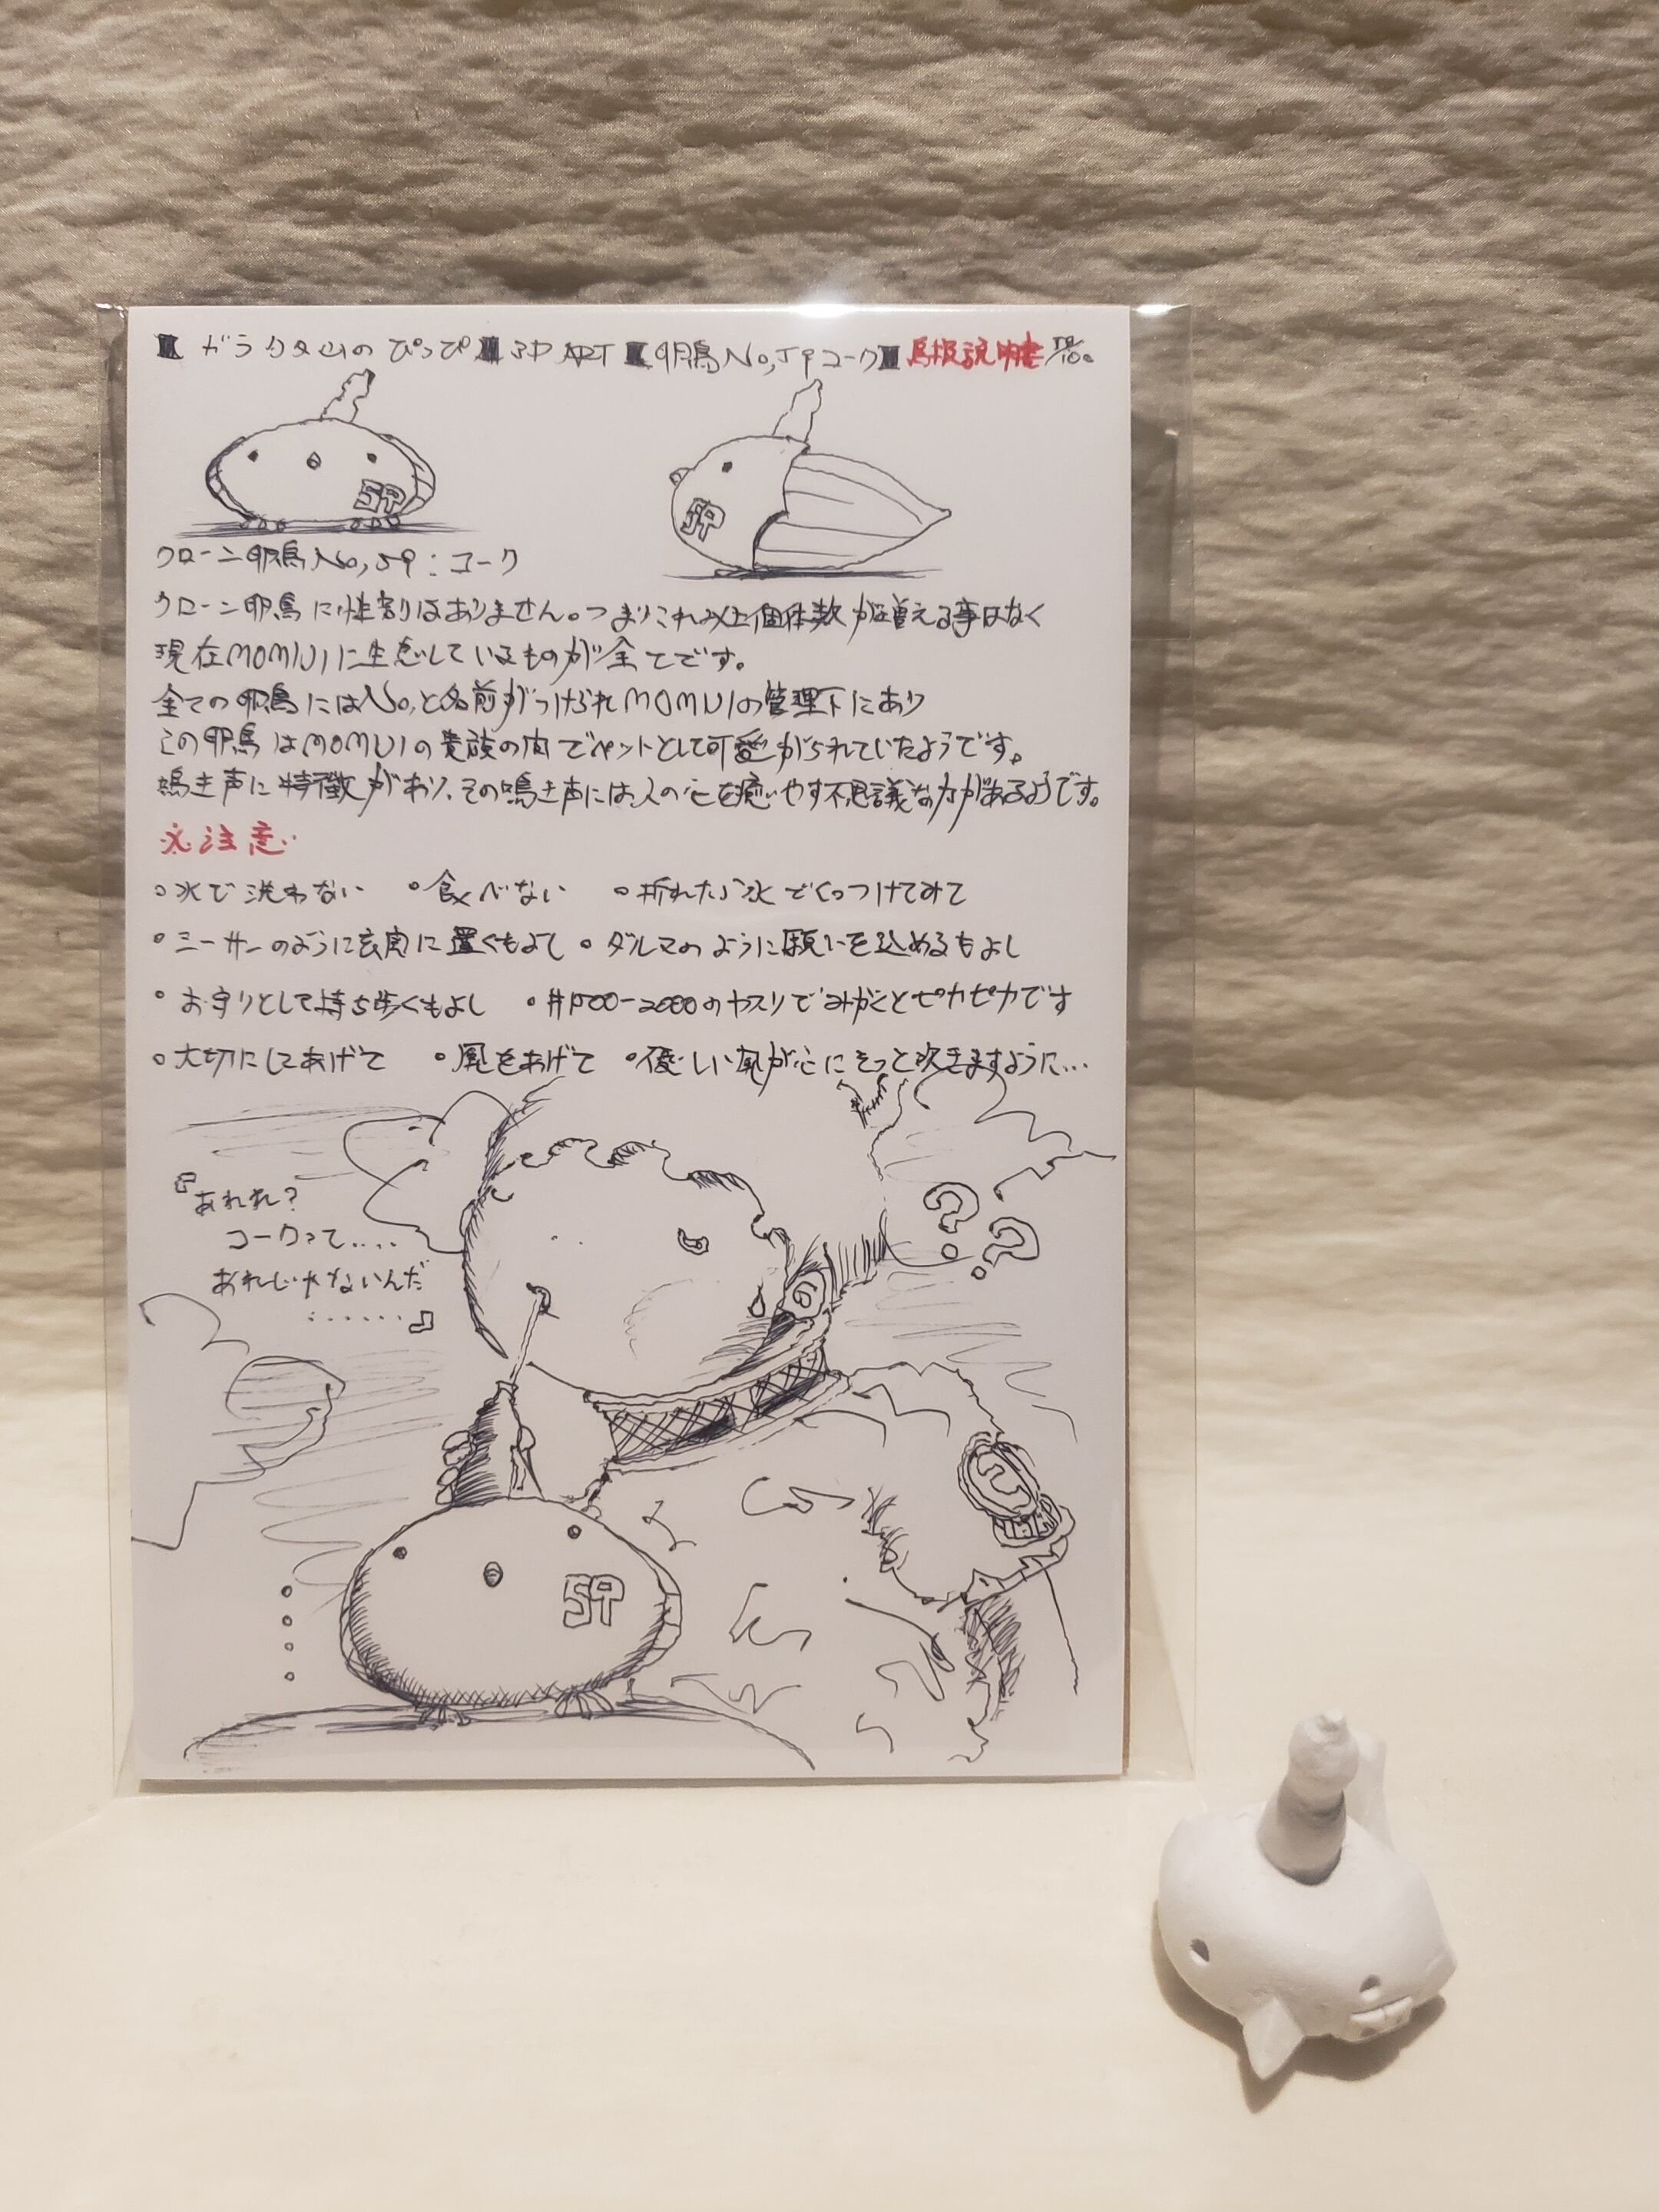 ガラクタ山のぴっぴ 3D ART 卵鳥No,59コーク 鳥取説明書 59/100
59
59
クローン卵鳥No,59：コーク
クローン卵鳥に性別はありません。つまりこれ以上個体数が増える事はなく
現在MOMUIに生息しているものが全てです。
全ての卵鳥にはNo,と名前がつけられMOMUIの管理下にあり
この卵鳥はMOMUIの貴族の間でペットとして可愛がられていたようです。
鳴き声に特徴があり、その鳴き声には人の心を癒やす不思議な力があるようです。
※注意
○水で洗わない ○食べない ○折れたら水でくっつけてみて
○ミーサーのように玄関に置くもよし ○ダルマのように願いを込めるもよし
○お守りとして持ち歩くもよし ○#1500-2000のヤスリでみがくとピカピカです
○大切にしてあげて ○風をあげて ○優しい風が心にそっと吹きますように…
『あれれ？
コークって....
あれじゃないんだ
......』
??
59